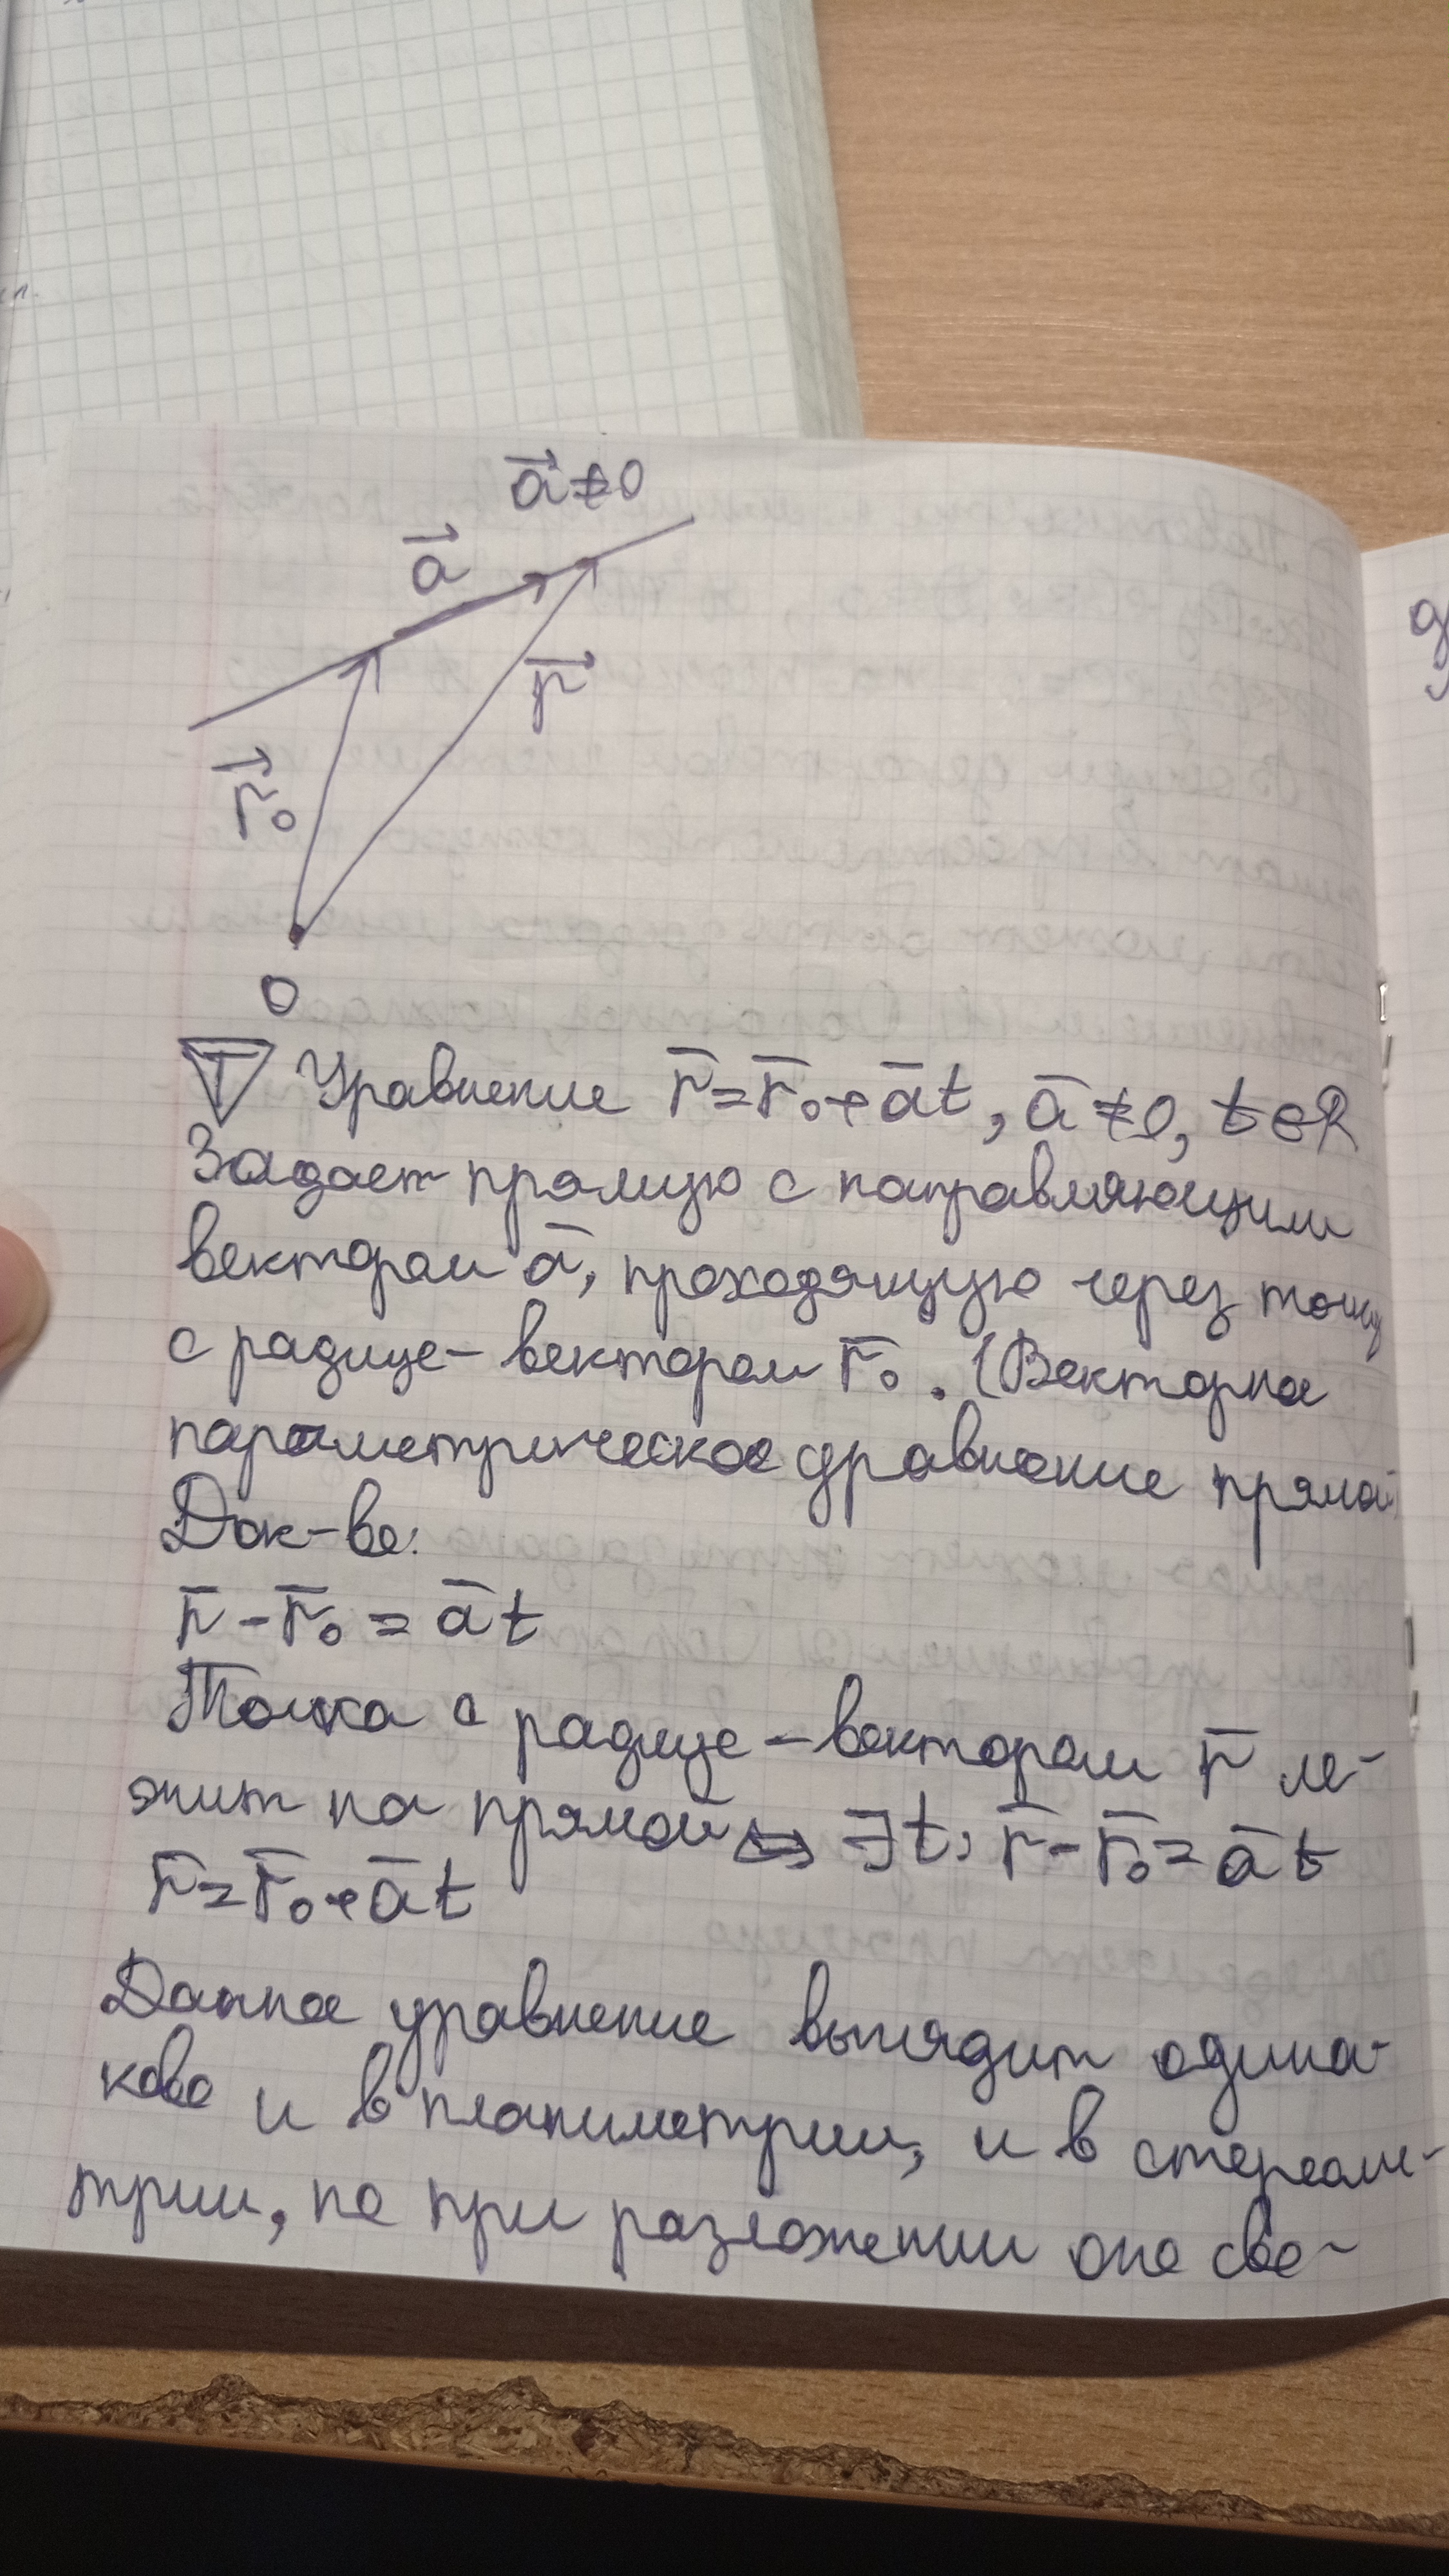 a⃗ ≠ 0
a⃗
r⃗
r⃗₀
0
T Уравнение r̄ = r̄₀ + āt, ā ≠ 0, t ∈ R
Задает прямую с направляющим
вектором ā, проходящую через точку
с радиус-вектором r̄₀. (Векторное
параметрическое уравнение прямой)
Док-во:
r̄ - r̄₀ = āt
Точка с радиус-вектором r̄ ле-
жит на прямой ⇔ ∃t, r̄ - r̄₀ = āt
r̄ = r̄₀ + āt
Данное уравнение выглядит одина-
ково и в планиметрии, и в стереоме-
трии, но при разложении оно сво-